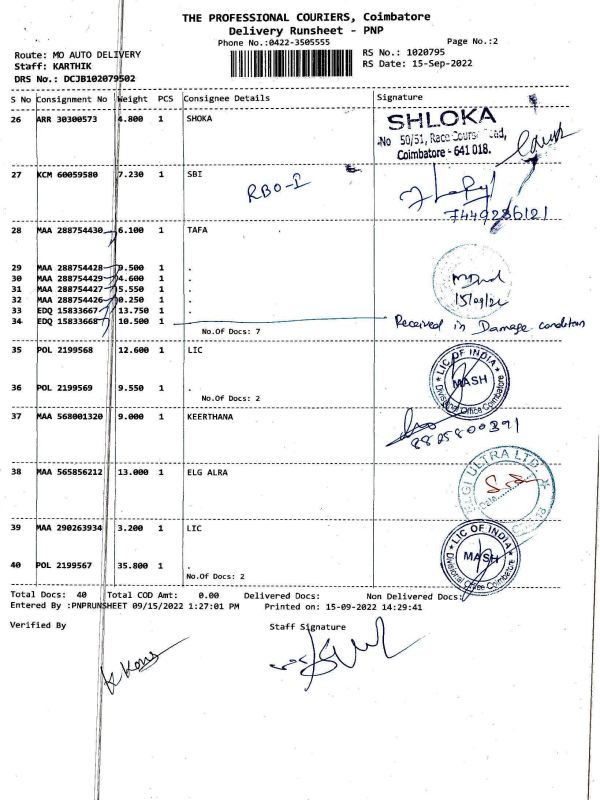 THE PROFESSIONAL COURIERS, Coimbatore
Delivery Runsheet - PNP
Phone No.:0422-3505555
Page No.:2
Route: MO AUTO DELIVERY
RS No.: 1020795
Staff: KARTHIK
RS Date: 15-Sep-2022
DRS No.: DCJB102079502
S No Consignment No Weight PCS Consignee Details Signature
26 ARR 30300573 4.800 1 SHOKA
SHLOKA
No 50/51, Race Course Road,
Coimbatore - 641 018.
27 KCM 60059580 7.230 1 SBI
RBO-I
7449286121
28 MAA 288754430 6.100 1 TAFA
29 MAA 288754428 9.500 1 .
30 MAA 288754429 4.600 1 .
31 MAA 288754427 5.550 1 .
15/09/22
32 MAA 288754426 0.250 1 .
33 EDQ 15833667 13.750 1 .
34 EDQ 15833668 10.500 1 .
Received in Damage condition
No.Of Docs: 7
35 POL 2199568 12.600 1 LIC
LIC OF INDIA
MASH
Divisional Office Coimbatore
36 POL 2199569 9.550 1 .
No.Of Docs: 2
37 MAA 568001320 9.000 1 KEERTHANA
8825800391
38 MAA 565856212 13.000 1 ELG ALRA
ELGI ULTRA LTD.
Date
39 MAA 290263934 3.200 1 LIC
LIC OF INDIA
MASH
Divisional Office Coimbatore
40 POL 2199567 35.800 1 .
No.Of Docs: 2
Total Docs: 40 Total COD Amt: 0.00 Delivered Docs: Non Delivered Docs:
Entered By :PNPRUNSHEET 09/15/2022 1:27:01 PM Printed on: 15-09-2022 14:29:41
Verified By
Staff Signature